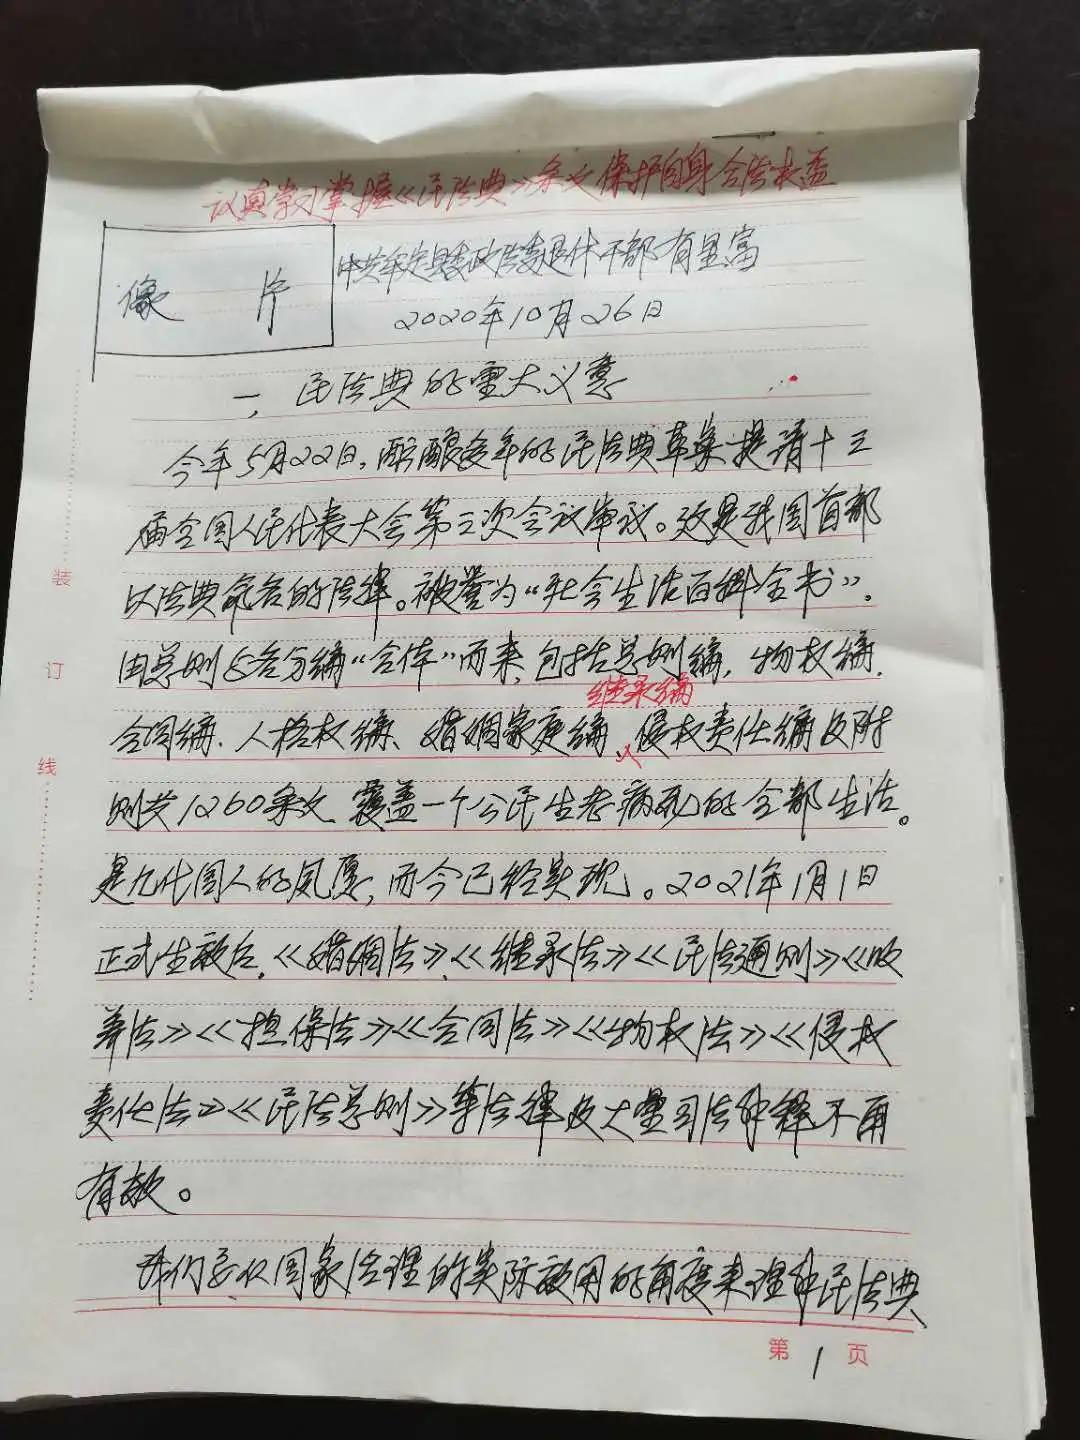 认真学习掌握《民法典》条文保护自身合法权益
像 片
中共牟定县委政法委退休干部有呈富
2020年10月26日
一、民法典的重大义意
今年5月22日,酝酿多年的民法典草案提请十三
届全国人民代表大会第三次会议审议。这是我国首部
以法典命名的法律。被誉为“社会生活百科全书”.
由总则与各分编“合体”而来,包括总则编.物权编.
继承编
合同编.人格权编、婚姻家庭编、侵权责任编及附
则共1260条文.覆盖一个公民生老病死的全部生活。
是几代国人的夙愿,而今已经实现。2021年1月1日
正式生效后.《婚姻法》、《继承法》《民法通则》《收
养法》《担保法》《合同法》《物权法》《侵权
责任法》《民法总则》等法律及大量司法解释不再
有效。
我们要从国家治理的实际效用的角度来理解民法典
装
订
线
第 1 页